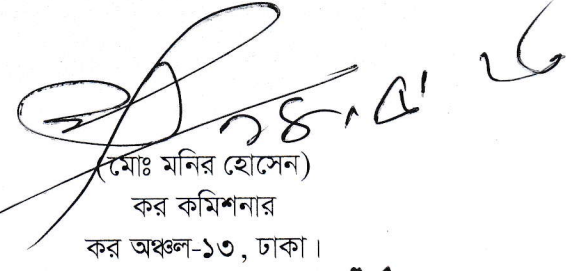 (মোঃ মনির হোসেন)
কর কমিশনার
কর অঞ্চল-১৩, ঢাকা।